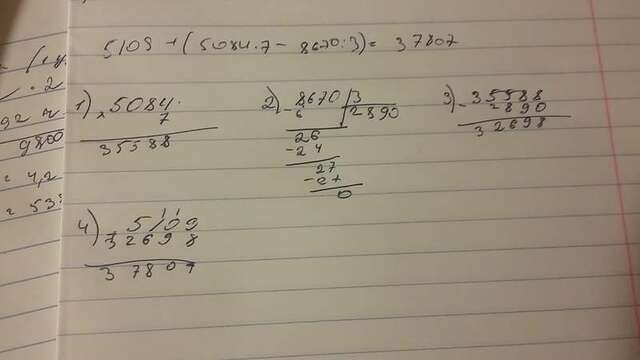 9800
5109 + (5084·7 - 8670:3) = 37807
1) × 5084
7
35588
2) - 8670 | 3
6 | 2890
26
- 24
27
- 27
0
3) - 35588
2890
32698
4) 5109
+ 32698
37807